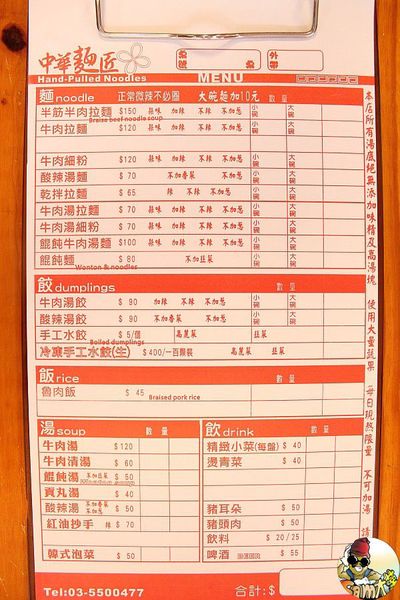 中華麵匠
Hand-Pulled Noodles
MENU
麵noodle 正常微辣不必圈 大碗麵加10元 數量
半筋半肉拉麵 $150 蒜味 加辣 不辣 不加蔥 小碗 大碗
Braise beef noodle soup
牛肉拉麵 $120 蒜味 加辣 不辣 不加蔥 小碗 大碗
牛肉細粉 $120 蒜味 加辣 不辣 不加蔥 小碗 大碗
酸辣湯麵 $70 不加香菜 不加蔥 小碗 大碗
乾拌拉麵 $65 辣 不辣 不加蔥 小碗 大碗
牛肉湯拉麵 $70 蒜味 加辣 不辣 不加蔥 小碗 大碗
牛肉湯細粉 $70 蒜味 加辣 不辣 不加蔥 小碗 大碗
餛飩牛肉湯麵 $100 蒜味 加辣 不辣 不加蔥 小碗 大碗
餛飩麵 $80 不加韭菜 小碗 大碗
Wonton & noodles
餃dumplings 數量
牛肉湯餃 $90 加辣 不辣 不加蔥 小碗 大碗
酸辣湯餃 $90 不加香菜 不加蔥 小碗 大碗
手工水餃 $5/個 高麗菜 韭菜
Boiled dumplings
冷凍手工水餃(生) $400/一百顆裝 高麗菜 韭菜
飯rice 數量
魯肉飯 $45
Braised pork rice
湯soup 數量
牛肉湯 $120
牛肉清湯 $60
餛飩湯 不加韭菜 $50
貢丸湯 $40
酸辣湯 不加香菜 不加蔥 $50
紅油抄手 辣 $70
韓式泡菜 $50
飲drink 數量
精緻小菜(每盤) $40
燙青菜 $40
豬耳朵 $50
豬頭肉 $50
飲料 $20/25
啤酒 BEER $55
Tel:03-5500477
合計:$
本店所有湯底絕無添加味精及高湯塊 使用大量蔬果 每日現熬限量 不可加湯